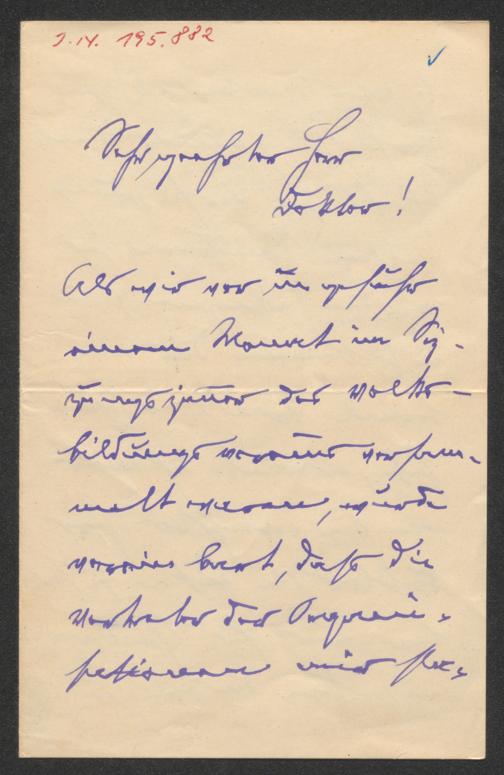 J.N. 195.882
Sehr geehrter Herr
Doktor!
Als wir vor ungefähr
einem Monat im Sit-
zungszimmer des Volks-
bildungsvereins versam-
melt waren, wurde
vereinbart, dass die
Vertreter der Organi-
sationen mir